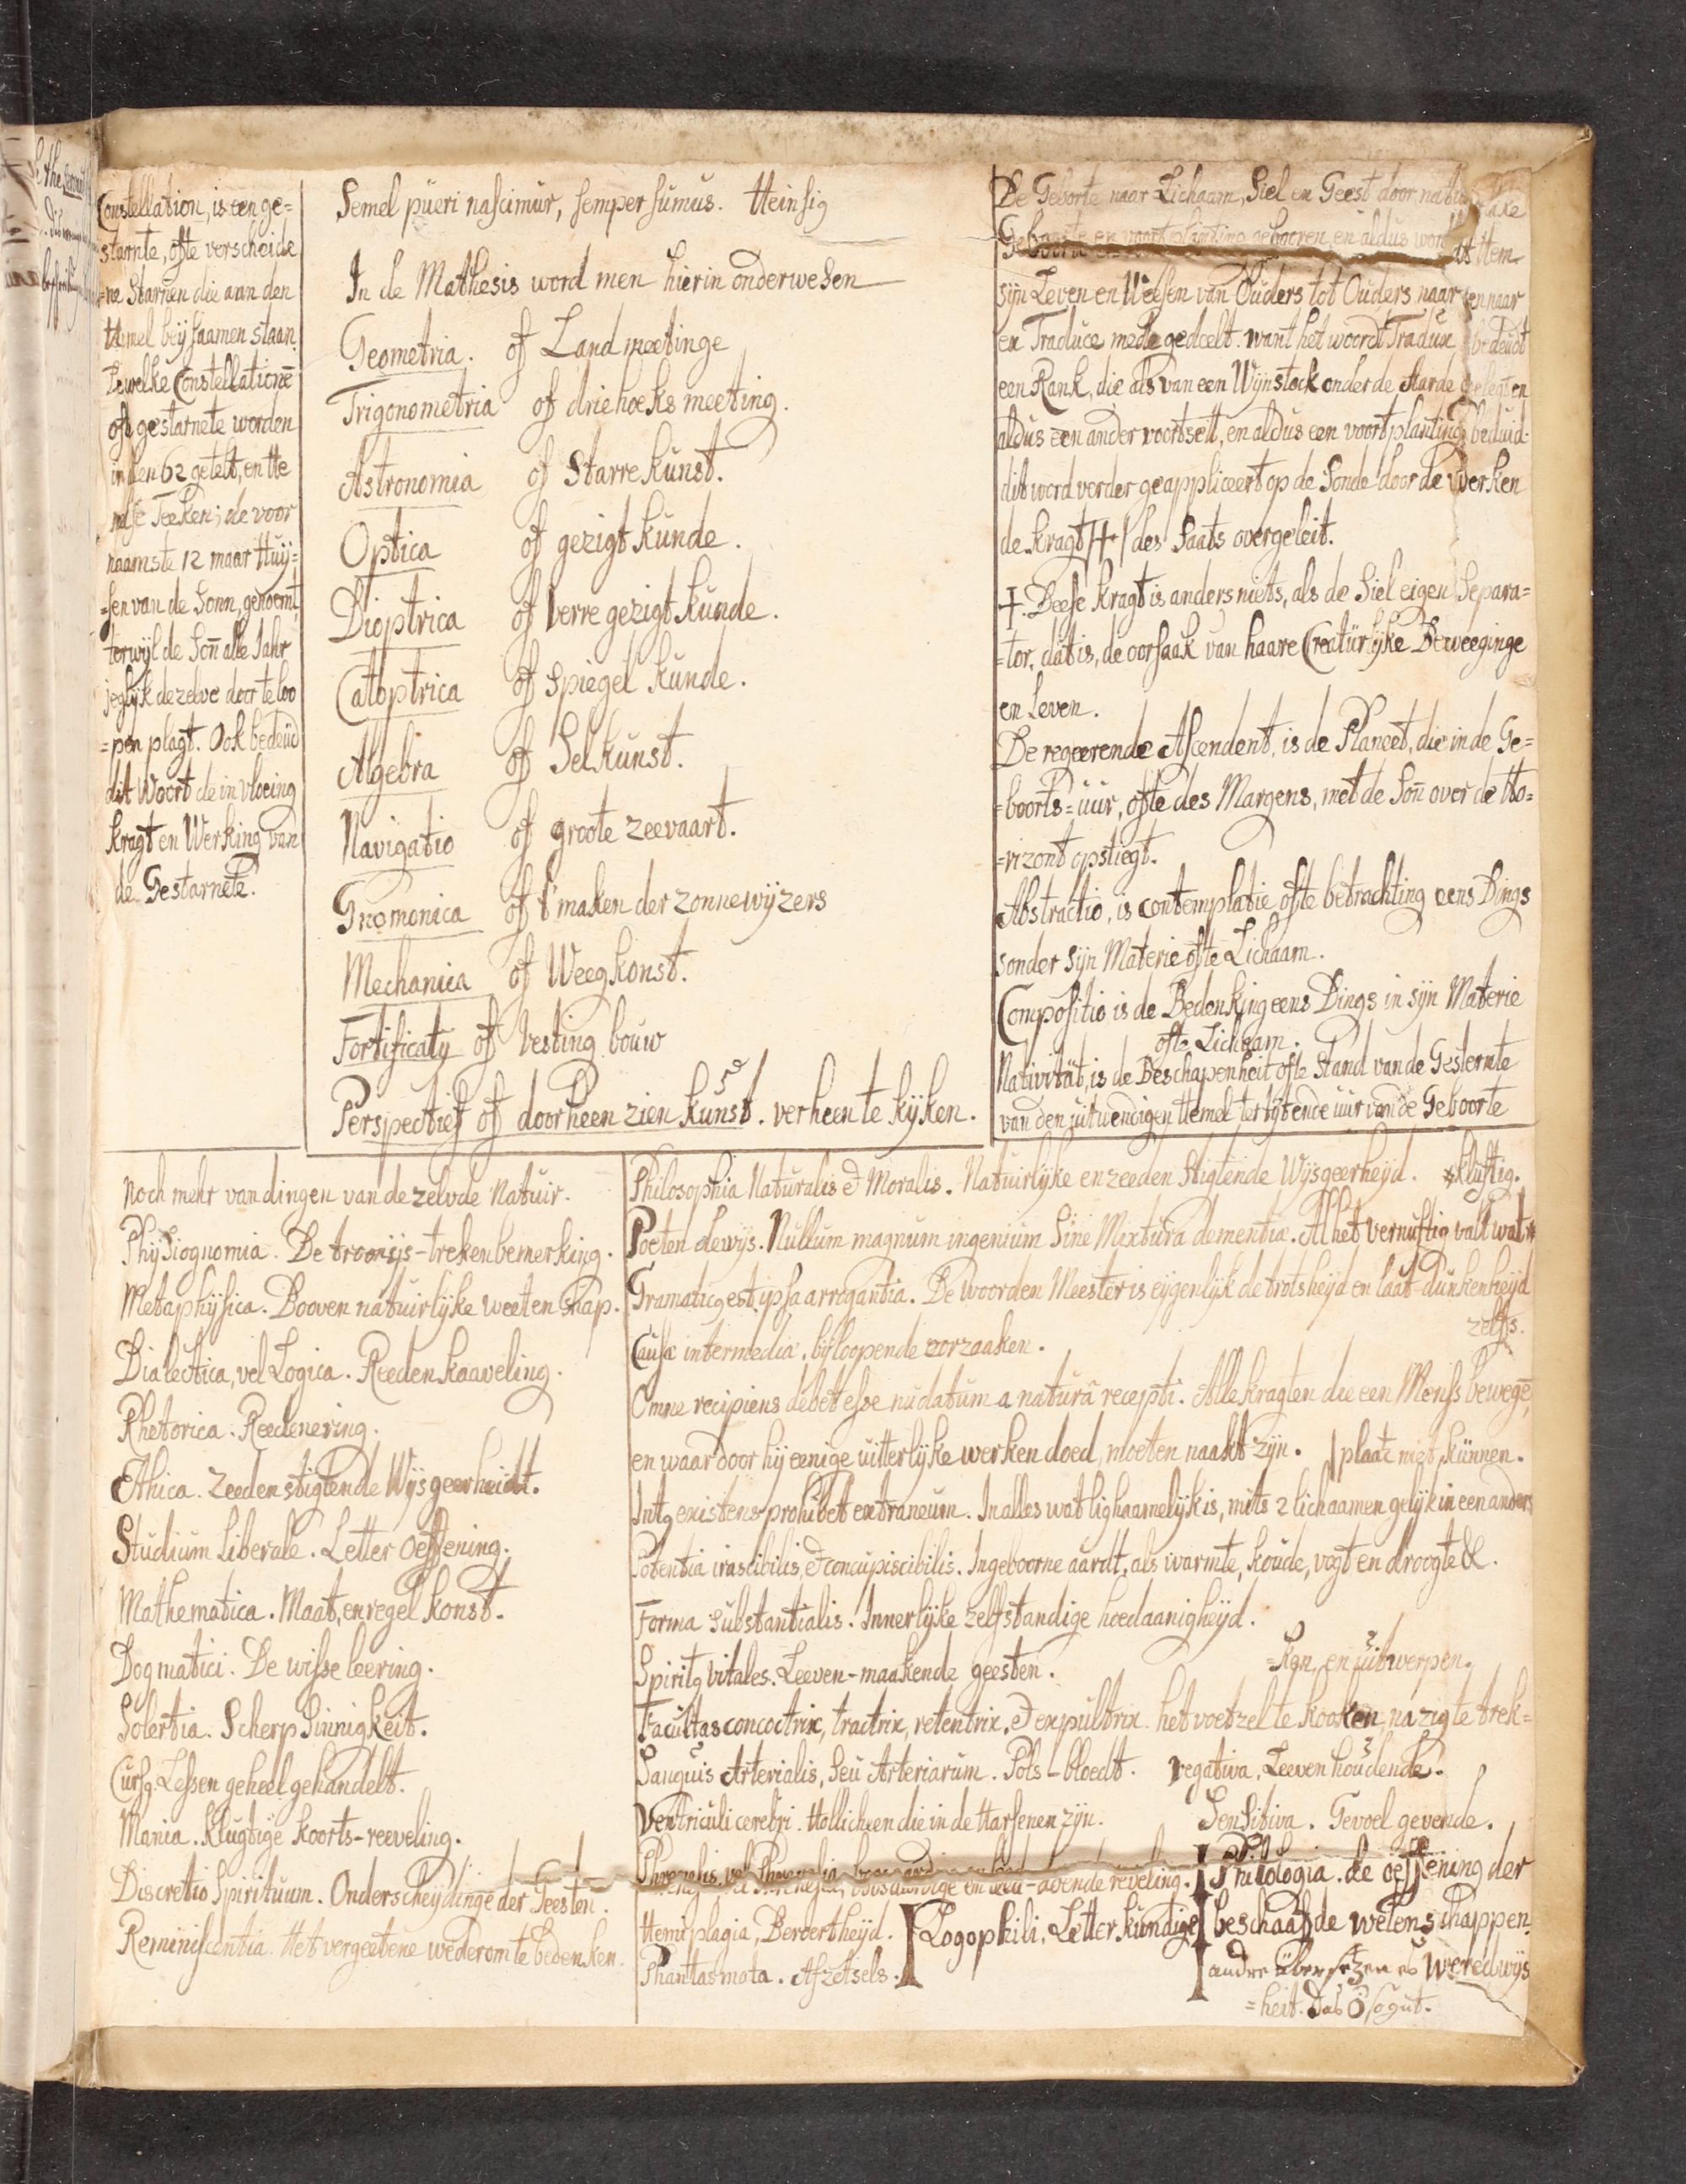 Constellation, is een ge=
starnte, ofte verscheide
=ne Starnen die aan den
Hemel beÿ saamen staan.
Dewelke Constellatione
oft gestarnete worden
in den 62 getelt, en He
melse Teeken; de voor
naamste 12 maar Huÿ=
=sen van de Sonn, genoemt,
terwijl de Son̄ alle Jahr
jeglijk dezelve door te loo
=pen plagt. Ook bedeüd
dit Woort de in vloeing
kragt en Werking van
de Gestarnete.
Semel püeri nascimur, semper sumus. Heinsig
In de Mathesis word men hierin onderwesen
Geometria. of Land meetinge
Trigonometria of driehoeks meeting.
Astronomia of Starre kunst.
Optica of gezigt kunde.
Dioptrica of Verre gezigt kunde.
Catoptrica of Spiegel kunde.
Algebra of Selkunst.
Navigatio of groote zeevaart.
Gnomonica of t' maken der zonnewÿzers
Mechanica of Weegkonst.
Fortificaty of Vesting bouw
Perspectief of doorheen zien kunst. verheen te kÿken.
De Geborte naar Lichaam, Siel en Geest door
sÿn Leven en Weesen van Ouders tot Ouders naar en naar
ex Traduce mede gedeelt. want het woordt Tradux bedeüdt
een Rank, die als van een Wÿnstock onder de Aarde gelegt en
aldus een ander voortsett, en aldus een voortplanting beduid.
dit word verder geappliceert op de Sonde door de werken
de kragt /+/ des Saats overgeleit.
+. Deese kragt is anders niets, als de Siel eigen Separa=
=tor, dat is, de oorsaak van haare Creatürlÿke Beweeginge
en Leven.
De regeerende Ascendent, is de Planeet, die in de Ge=
=boorts=uur, ofte des Margens, met de Son̄ over de Ho=
=rizont opstiegt.
Abstractio, is contemplatie ofte betrachting eens Dings
sonder sÿn Materie ofte Lichaam.
Compositio is de Bedenking eens Dings in sÿn Materie
ofte Lichaam.
Nativität, is de Beschapenheit ofte Stand van de Gesternte
van den uitwendigen Hemel ter tÿt ende uur van de Geboorte
Noch mehr van dingen van de zelvde Natuir.
Phÿsiognomia. De tronijs-treken bemerking.
Metaphÿsica. Booven natuirlÿke weeten schap.
Dialectica, vel Logica. Reeden kaaveling.
Rhetorica. Reedenering.
Ethica. zeeden stigtende Wÿsgeerheidt.
Studium Liberale. Letter Oeffening.
Mathematica. Maat, en regel konst.
Dogmatici. De wisse leering.
Solertia. Scherp Sinnigkeit.
Cursg. Lessen geheel gehandelt.
Mania. Klugtige koorts-reeveling.
Discretio Spirituum. Onderscheÿdinge der Geesten.
Reminiscentia. Het vergeetene wederom te bedenken.
Philosophia Naturalis & Moralis. Natuirlÿke en zeeden Stigtende Wÿsgeerheÿd. *kluftig.
Poeten dewijs. Nullum magnum ingenium Sine Mixtura dementiæ. Al het vernuftig valt wat *
Gramaticg est ipsa arrogantia. De woorden Meester is eÿgenlÿk de trotsheÿd en laat-dunkenheÿd
zelfs.
Causæ intermediæ. bÿloopende oorzaaken.
Omne recipiens debet esse nudatum a naturâ recepti. Alle kragten die een Mensch bewege,
en waardoor hÿ eenige uitterlÿke werken doed, moeten naakt zÿn. / plaats niet künnen.
Intg existens prohibet extraneum. In alles wat lighaamelÿk is, mits 2 lichaamen gelÿk in een anders
Potentia irascibilis, & concupiscibilis. Ingeboorne aardt, als warmte, koude, vogt en droogte &.
Forma Substantialis. Innerlÿke zelfstandige hoedaanigheÿd.
Spiritg Vitales. Leeven-maakende geesten. =ken, en uitwerpen.
Facultas concoctrix, tractrix, retentrix, & expultrix. het voetzel te kooken, na zig te trek=
Sanguis Arterialis, Seu Arteriarum. Pols-bloedt. Vegativa, Leeven houdende.
Ventriculi cerebri. Hollicheen die in de Harsenen zÿn. Sensitiva. Gevoel gevende.
Philologia. de oeffening der
Hemiplagia, Beroertheÿd. Logophili, Letter kundige beschaafde wetenschappen.
Phantasmata. Afzetsels. andre übersezen es Weredwijs
=heit. Das 6 so gut.